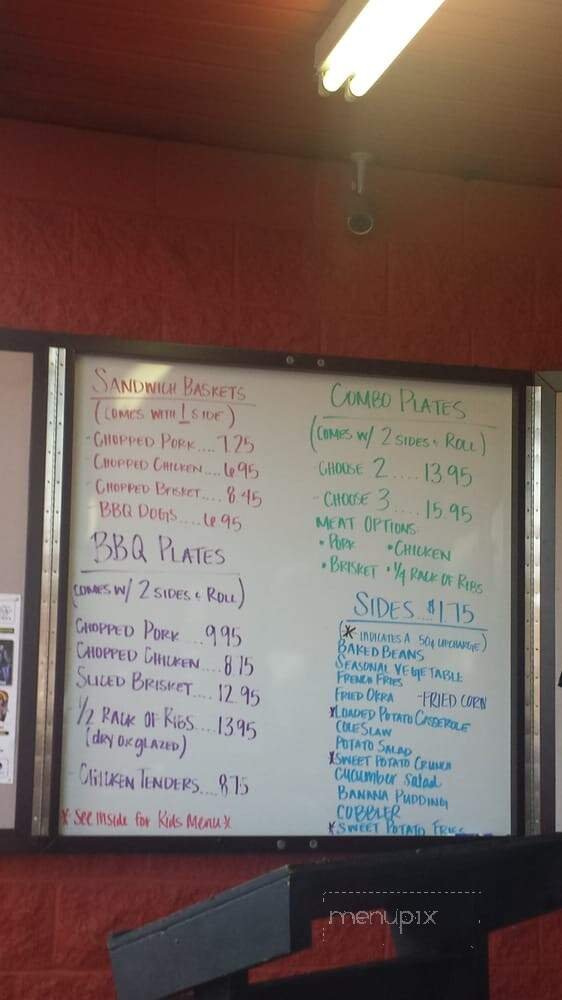 SANDWICH BASKETS
(COMES WITH 1 SIDE)
- CHOPPED PORK.... 7.25
- CHOPPED CHICKEN.... 6.95
- CHOPPED BRISKET.... 8.45
- BBQ DOGS.... 6.95
BBQ PLATES
(COMES W/ 2 SIDES & ROLL)
CHOPPED PORK.... 9.95
CHOPPED CHICKEN.... 8.75
SLICED BRISKET.... 12.95
1/2 RACK OF RIBS.... 13.95
(DRY OR GLAZED)
- CHICKEN TENDERS.... 8.75
* See Inside for Kids Menu *
COMBO PLATES
(COMES W/ 2 SIDES & ROLL)
- CHOOSE 2.... 13.95
- CHOOSE 3.... 15.95
MEAT OPTIONS
• PORK • CHICKEN
• BRISKET • 1/4 RACK OF RIBS
SIDES... $1.75
(* - INDICATES A 50¢ UPCHARGE)
BAKED BEANS
SEASONAL VEGETABLE
FRENCH FRIES
FRIED OKRA - FRIED CORN
*LOADED POTATO CASSEROLE
COLE SLAW
POTATO SALAD
*SWEET POTATO CRUNCH
Cucumber Salad
BANANA PUDDING
COBBLER
*SWEET POTATO FRIES
menupix